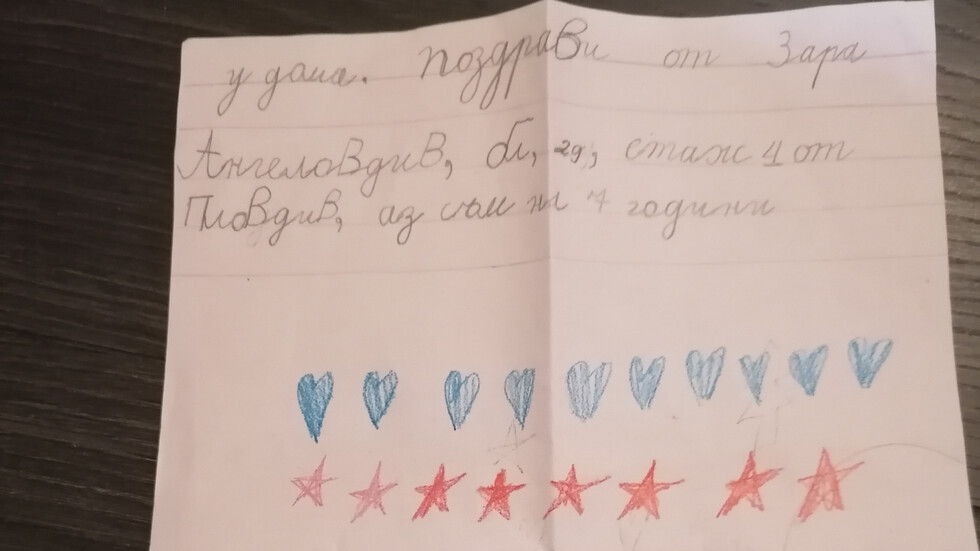 у дома. поздрави от Зара
АнгеловдиВ, бл, 29, етаж 1 от
Пловдив, аз съм на 7 години